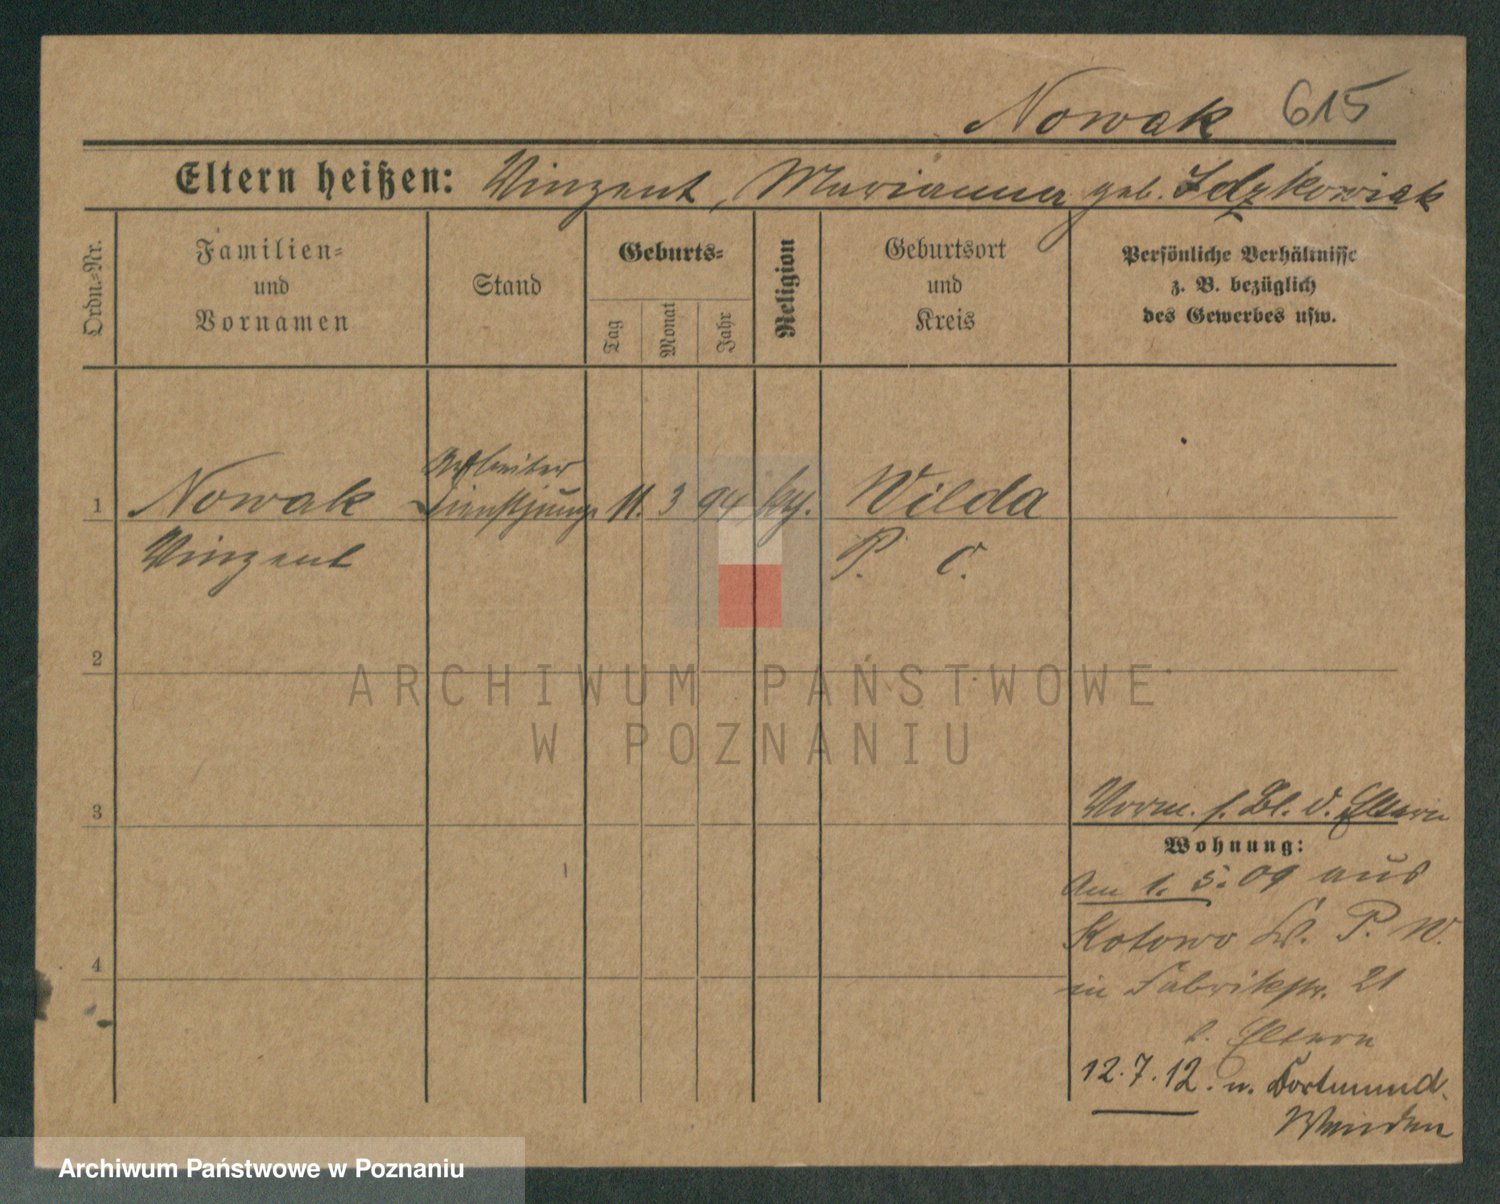 Nowak 615
Eltern heißen: Vinzent, Marianna geb. Idzkowiak
Ordn.-Nr.
Familien-
und
Vornamen
Stand
Geburts-
Tag
Monat
Jahr
Religion
Geburtsort
und
Kreis
Persönliche Verhältnisse
z. B. bezüglich
des Gewerbes usw.
Arbeiter
1 Nowak Dienstjunge 11. 3 94 kth. Wilda
Vinzent P. O.
2
ARCHIWUM PAŃSTWOWE
W POZNANIU
3
Vorm. s. Bl. d. Eltern
Wohnung:
Am 1. 5. 09 aus
Kotowo Kr. P. W.
4
in Fabrikstr. 21
b. Eltern
12.7.12. n. Dortmund.
Archiwum Państwowe w Poznaniu